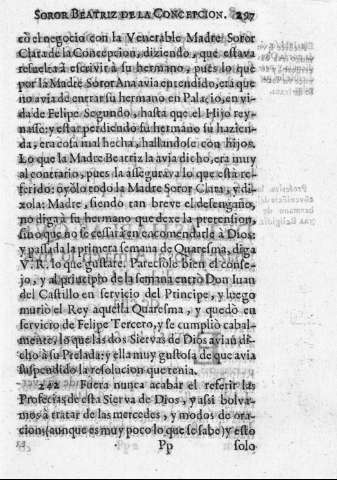 SOROR BEATRIZ DE LA CONCEPCION. 297
cò el negocio con la Venerable Madre Soror
Clara de la Concepcion, diziendo, que estava
resuelta à escrivir à su hermano, pues lo que
por la Madre Soror Ana avia entendido, era que
no avia de entrar su hermano en Palacio, en vi-
da de Felipe Segundo, hasta que el Hijo rey-
nasse: y estar perdiendo su hermano su hazien-
da, era cosa mal hecha, hallandose con hijos.
Lo que la Madre Beatriz la avia dicho, era muy
al contrario, pues la assegurava lo que està re-
ferido: oyòlo todo la Madre Soror Clara, y di-
xola: Madre, siendo tan breve el desengaño,
no diga à su hermano que dexe la pretension,
sino que no se cessarà en encomendarle à Dios:
y passada la primera semana de Quaresma, diga
V. R. lo que gustare. Pareciòle bien el conse-
jo, y al principio de la semana entrò Don Iuan
del Castillo en servicio del Principe, y luego
muriò el Rey aquella Quaresma, y quedò en
servicio de Felipe Tercero, y se cumpliò cabal-
mente, lo que las dos Siervas de Dios avian di-
cho à su Prelada: y ella muy gustosa de que avia
suspendido la resolucion que tenia.
242 Fuera nunca acabar el referir las
Profecias de esta Sierva de Dios, y assi bolva-
mos à tratar de las mercedes, y modos de ora-
cion, (aunque es muy poco lo que se sabe) y esto
Pp solo